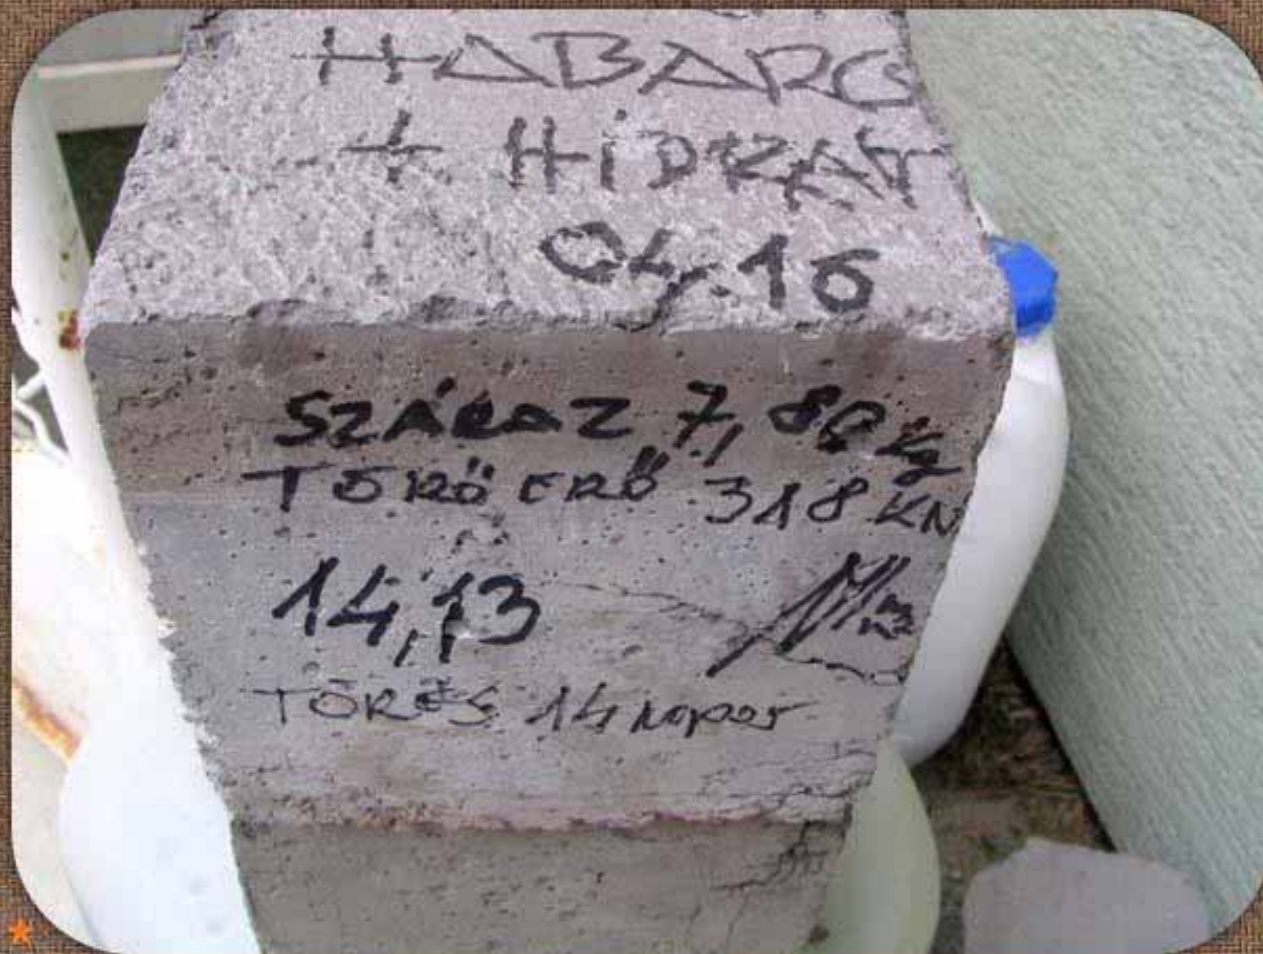 HABARC
+ HiDRAT
04.16
SZÁRAZ 7,80 kg
TÖRŐ ERŐ 318 KN
14,13
TÖRÉS 14 napos